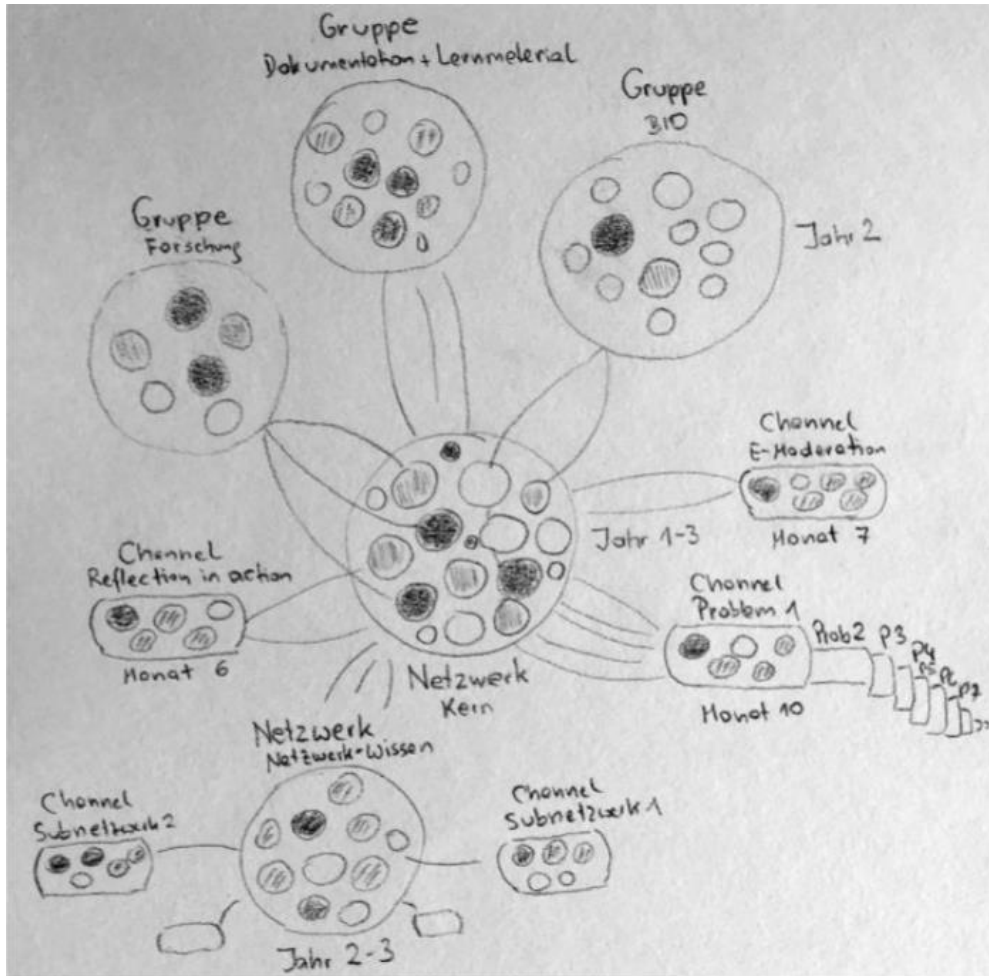 Gruppe
Dokumentation + Lernmeterial
Gruppe
BIO
Gruppe
Forschung
Jahr 2
Channel
E-Moderation
Monat 7
Jahr 1-3
Channel
Reflection in action
Monat 6
Channel
Problem 1
Prob 2
P3
P4
P5
P6
P7
Monat 10
Netzwerk
Kern
Netzwerk
Netzwerk-Wissen
Channel
Subnetzwerk 2
Channel
Subnetzwerk 1
Jahr 2-3